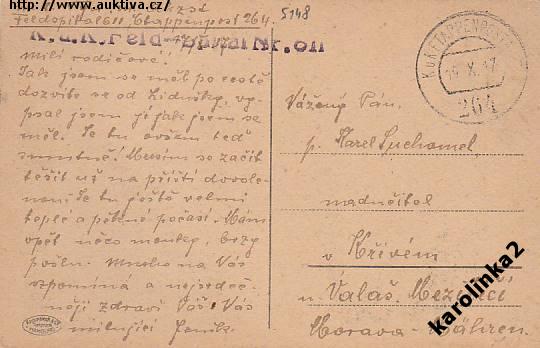 http://www.auktiva.cz/
Feldspital 611, Etappenpost 264.
5148
K.u.K. Feld-Spital Nr. 611
Milí rodičové!
Jak jsem se měl po cestě
dozvíte se od Lidušky, vy-
psal jsem jí jak jsem se
měl. Je tu ovšem teď
smutně! Musím se začít
těšit už na příští dovole-
nou. Je tu ještě velmi
teplé a pěkné počasí. Mám
opět něco mouky, brzy
pošlu. Mnoho na Vás
vzpomíná a nejsrdeč-
něji zdraví Vás Váš
milující Jeník.
K.u.K. ETAPPENPOSTAMT
X. 17
264
Vážený Pán
p. Karel Suchomel
nadučitel
v Křivém
u Valaš. Meziříčí
Morava - Mähren.
karolinka2